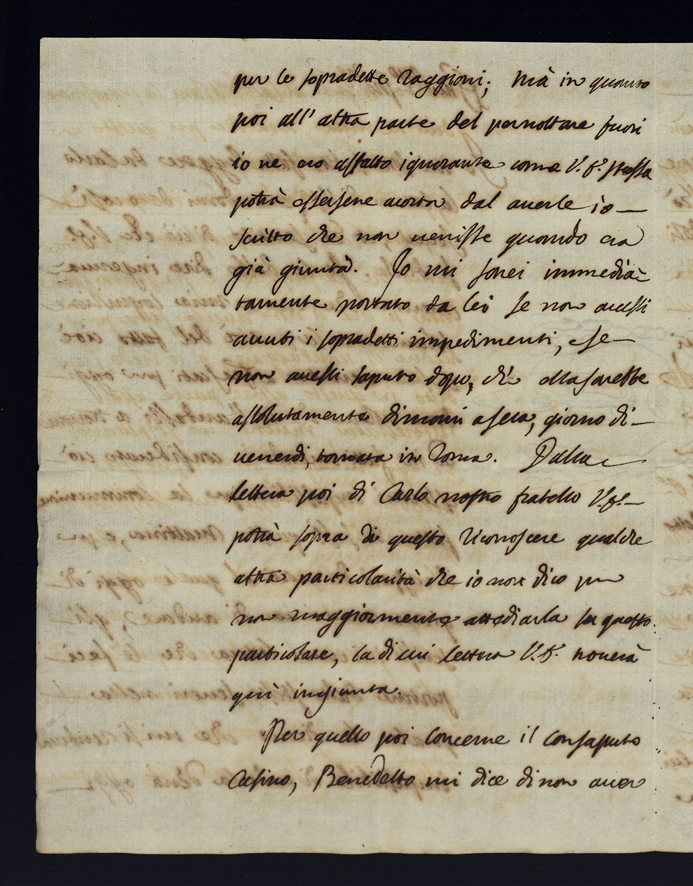 per le sopradette raggioni; mà in quanto
poi all'altra parte del pernottare fuori
io ne ero affatto ignorante come V.S. stessa
potrà essersene acorta dal averle io
scritto che non venisse quando era
già giunta. Io mi sarei immedia-
tamente portato da lei se non avessi
avuti i sopradetti impedimenti, e se
non avessi saputo dopo, che ella sarebbe
assolutamente dimani a sera, giorno di
venerdi, tornata in Roma. Dalla
lettera poi di Carlo nostro fratello V.S.
potrà sopra di questo riconoscere qualche
altra particolarità che io non dico per
non maggiormente attediarla su questo
particolare, la di cui lettera V.S. troverà
quì ingiunta.
Per quello poi concerne il consaputo
Casino, Benedetto mi dice di non aver